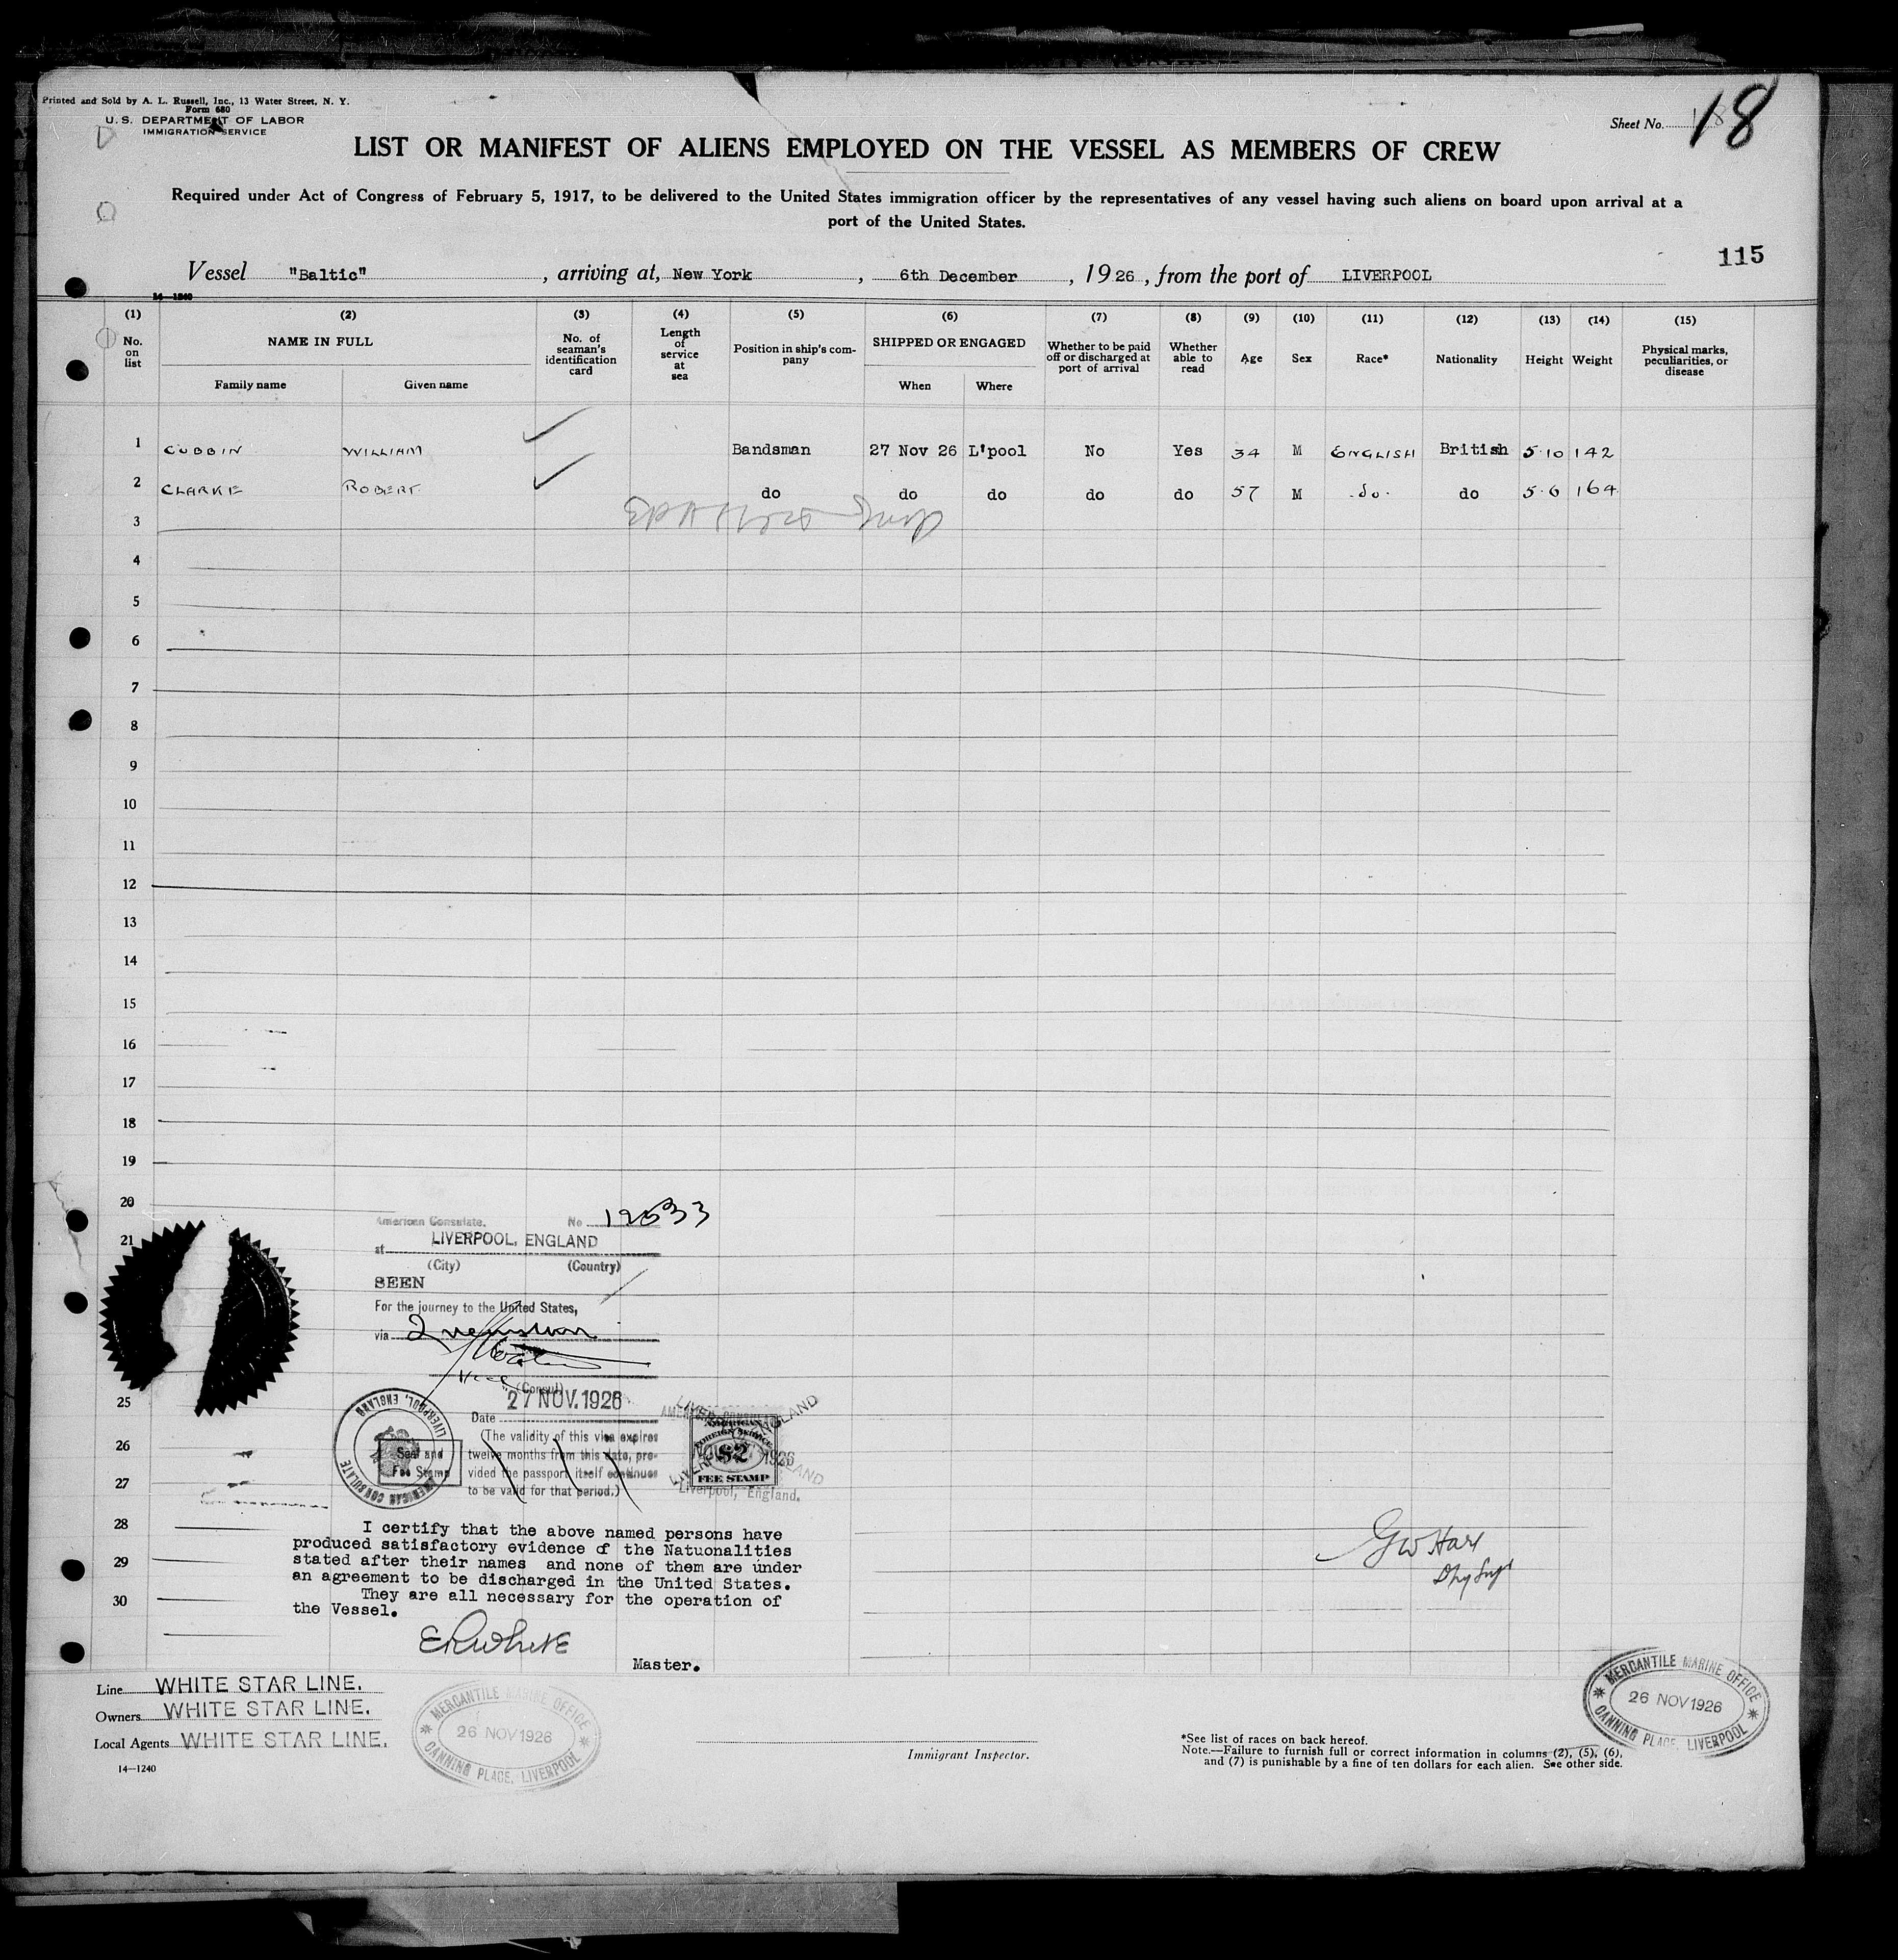 Printed and Sold by A. L. Russell, Inc., 13 Water Street, N. Y.
Form 680
U. S. DEPARTMENT OF LABOR
IMMIGRATION SERVICE
Sheet No. 18
LIST OR MANIFEST OF ALIENS EMPLOYED ON THE VESSEL AS MEMBERS OF CREW
Required under Act of Congress of February 5, 1917, to be delivered to the United States immigration officer by the representatives of any vessel having such aliens on board upon arrival at a
port of the United States.
115
Vessel "Baltic", arriving at, New York, 6th December, 1926, from the port of LIVERPOOL
14—1240
(1) (2) (3) (4) (5) (6) (7) (8) (9) (10) (11) (12) (13) (14) (15)
No. on list NAME IN FULL No. of seaman's identification card Length of service at sea Position in ship's company SHIPPED OR ENGAGED Whether to be paid off or discharged at port of arrival Whether able to read Age Sex Race* Nationality Height Weight Physical marks, peculiarities, or disease
Family name Given name When Where
1 CUBBIN WILLIAM Bandsman 27 Nov 26 L'pool No Yes 34 M ENGLISH British 5.10 142
2 CLARKE ROBERT do do do do do 57 M .do. do 5.6 164
3
4
5
6
7
8
9
10
11
12
13
14
15
16
17
18
19
20
21
25
26
27
28
29
30
American Consulate. No 12533
at LIVERPOOL, ENGLAND
(City) (Country)
SEEN
For the journey to the United States,
via
(Consul)
27 NOV. 1926
Date
(The validity of this visa expires
twelve months from this date, pro-
vided the passport itself continues
to be valid for that period.)
Seal and
Fee Stamp
AMERICAN CONSULATE LIVERPOOL, ENGLAND
AMERICAN
FOREIGN SERVICE
$2
FEE STAMP
Liverpool, England.
I certify that the above named persons have
produced satisfactory evidence of the Natuonalities
stated after their names and none of them are under
an agreement to be discharged in the United States.
They are all necessary for the operation of
the Vessel.
ERWhite
Master.
GW Hart
Line WHITE STAR LINE.
Owners WHITE STAR LINE.
Local Agents WHITE STAR LINE.
14—1240
MERCANTILE MARINE OFFICE
26 NOV 1926
CANNING PLACE, LIVERPOOL
Immigrant Inspector.
*See list of races on back hereof.
Note.—Failure to furnish full or correct information in columns (2), (5), (6),
and (7) is punishable by a fine of ten dollars for each alien. See other side.
MERCANTILE MARINE OFFICE
26 NOV 1926
CANNING PLACE, LIVERPOOL